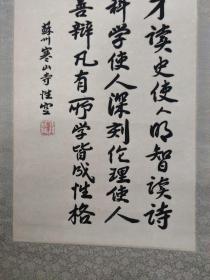 才读史使人明智读诗
科学使人深刻伦理使人
善辩凡有所学皆成性格
苏州寒山寺性空